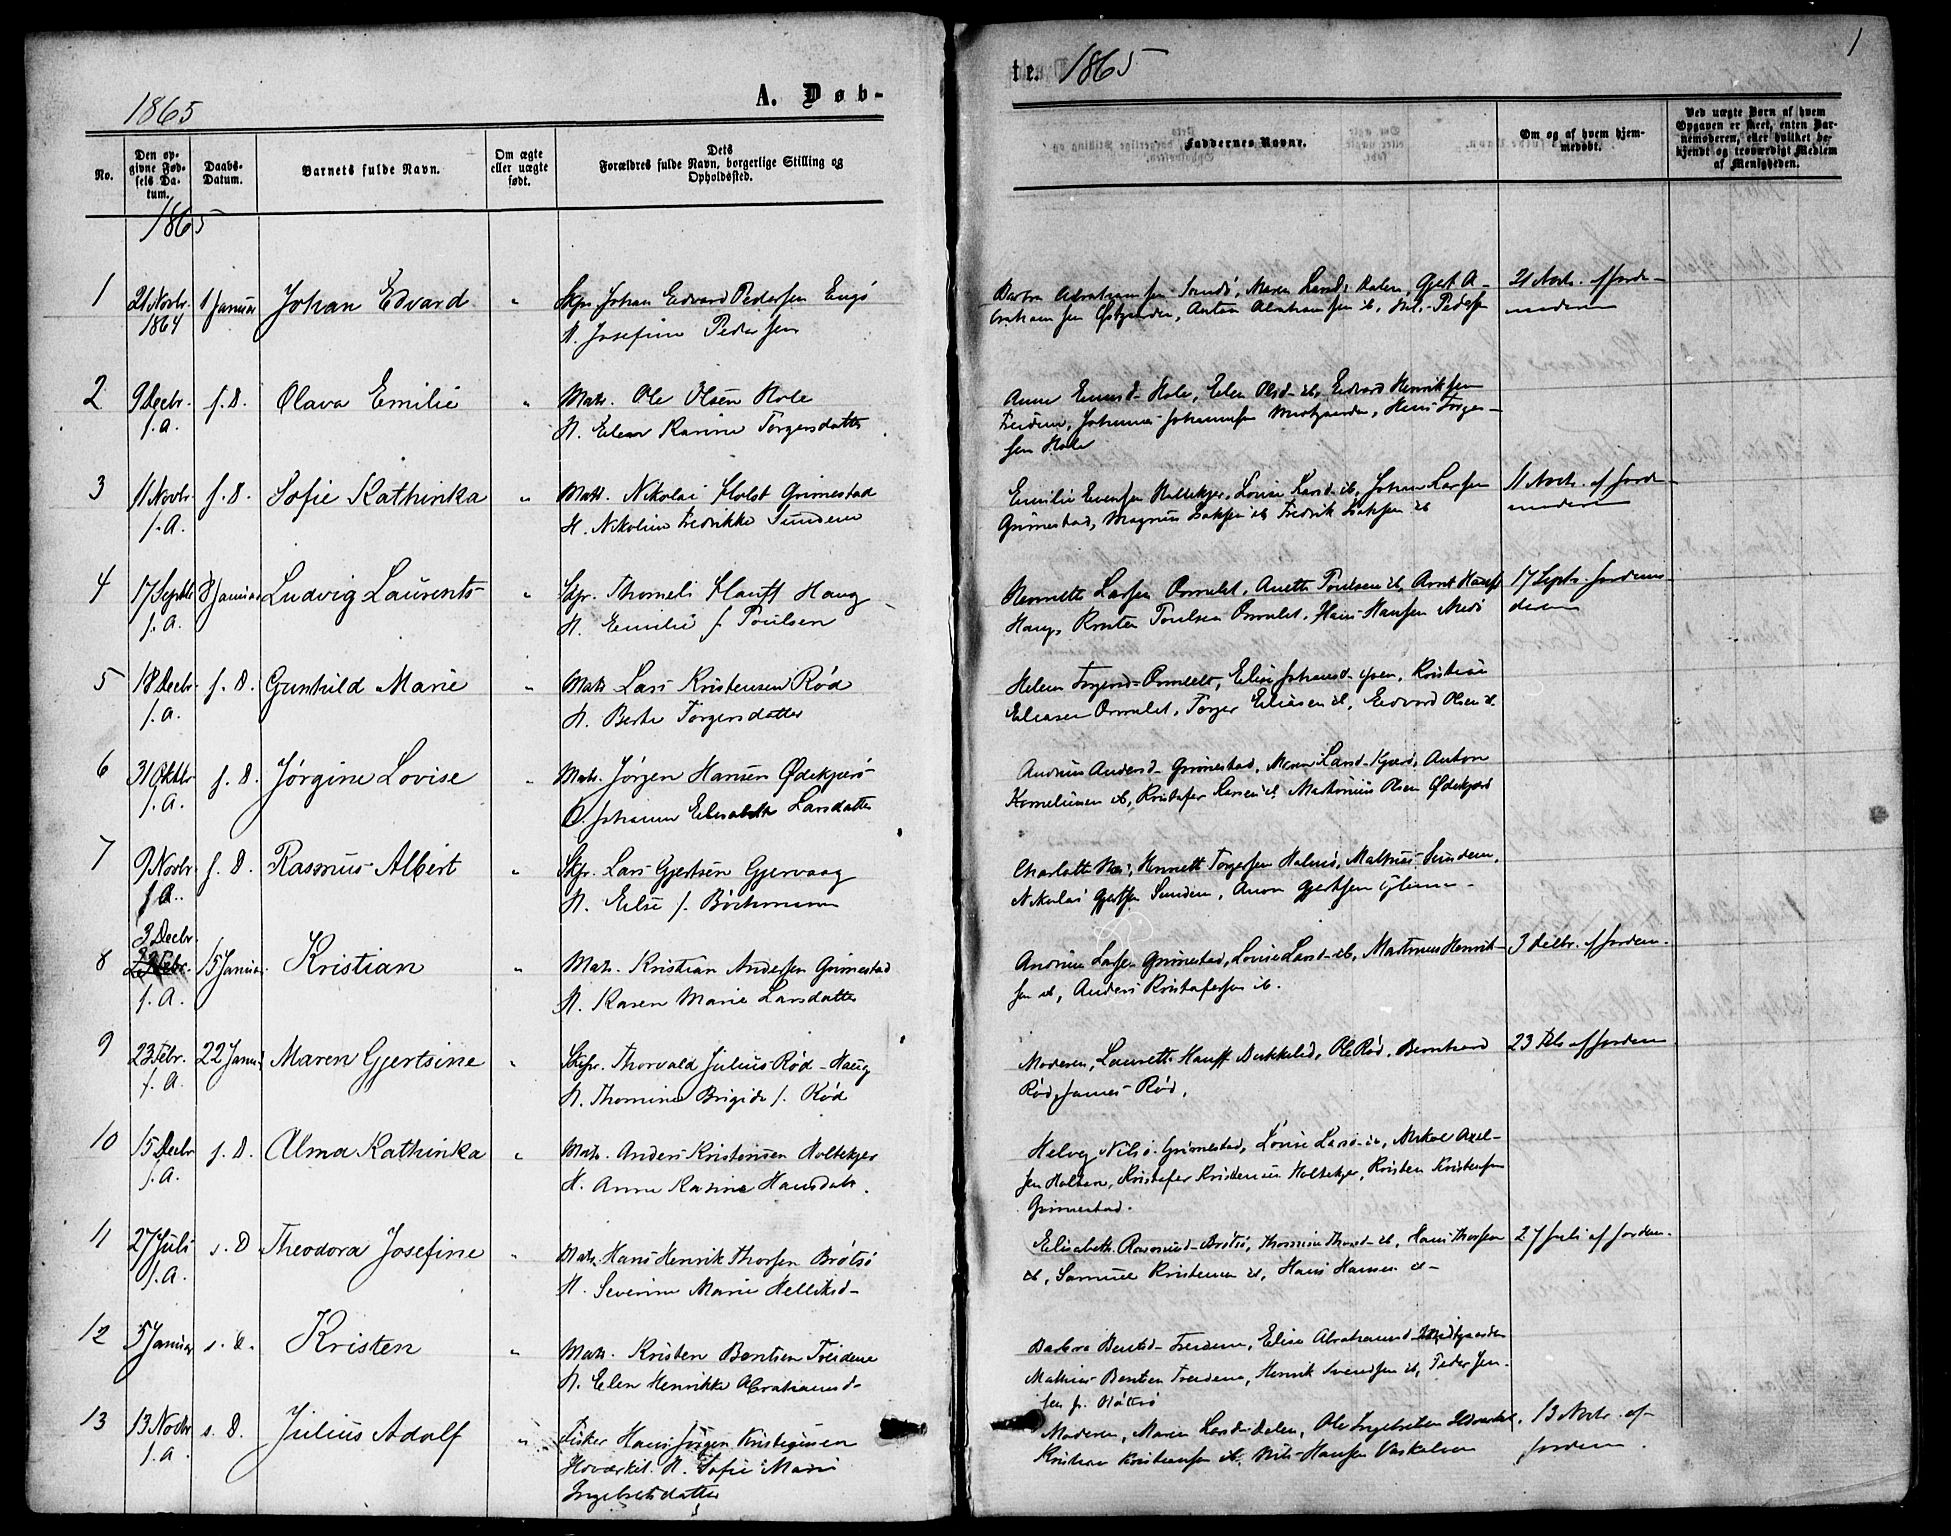 1865
A. Døb-
No.
Den op-
givne Fød-
sels Da-
tum.
Daabs-
Datum.
Barnets fulde Navn.
Om ægte
eller uægte
født.
Dets
Forældres fulde Navn, borgerlige Stilling og
Opholdssted.
1865
1
21 Novbr.
1864
1 Januar
Johan Edvard
"
Skpr. Johan Edvard Pedersen Engø
H. Josefine Pedersen
2
9 Decbr.
f. A.
f. D.
Olava Emilie
"
Matr. Ole Olsen Hole
H. Elen Karine Torgersdatter
3
11 Novbr
f. A.
f. D.
Sofie Kathinka
"
Matr. Nikolai Holst Grimestad
H. Nikoline Fredrikke Sundene
4
17 Septbr
f. A.
8 Januar
Ludvig Laurents
"
Skpr. Hauff Haug
H. Emilie f. Poulsen
5
18 Decbr
f. A.
f. D.
Gunhild Marie
"
Matr Lars Kristensen Rød
H. Berte Torgersdatter
6
31 Oktbr
f. A.
f. D.
Jørgine Lovise
"
Matr. Jørgen Hansen Ødekjær
H. Johanne Elisabeth Larsdatter
7
9 Novbr
f. A.
f. D.
Rasmus Albert
"
Skpr. Lars Gjertsen Gjervaag
H. Else f. Bøckmann
8
3 Decbr.
f. A.
15 Januar
Kristian
"
Matr. Kristian Andersen Grimestad
H. Karen Marie Larsdatter
9
23 Febr.
f. A.
22 Januar
Maren Gjertsine
"
Skpr. Thorvald Julius Rød Haug
H. Thomine Brigide f. Rød
10
15 Decbr
f. A.
f. D.
Alma Kathinka
"
Matr. Anders Kristensen Holtekjær
H. Anne Karine Hansdatr.
11
27 Juli
f. A.
s. D
Theodora Josefine
"
Matr. Hans Henrik Thorsen Brøtsø
H. Severine Marie Helliksd
12
5 Januar
s. D.
Kristen
"
Matr. Kristen Bentsen Treidene
H. Elen Henrikke Abrahamsd
13
13 Novbr
f. A.
s. D.
Julius Adolf
"
Fisker Hans Jørgen Kristensen
H. Sofie Marie
Ingebretsdatter
te. 1865
1
Faddernes Navne.
Om og af hvem hjem-
medøbt.
Ved uægte Børn af hvem
Opgaven er skeet, enten Bar-
nemoderen, eller hvilket be-
kjendt og troværdigt Medlem
af Menigheden.
Barbra Abrahamsen Sundø, Maren Larsd Dalen, Gjert A-
brahamsen Østgaarden, Anton Abrahamsen ib, Nils Pedersen
21 Novbr. af Jorde-
moderen
Anne Hole, Elen Olsd ib, Edvard Henriksen
Treidene, Johannes Johannesen Midtgaarden, Hans Torger-
sen Hole
Emilie Evensen Holtekjær, Lovise Larsd ib, Johan Larsen
Grimestad, Magnus ib Fredrik ib
11 Novbr. af Jorde-
moderen
Henriette Larsen Ormelet, Anette Poulsen ib, Arnt Hauff
Haug, Kristen Poulsen Ormelet, Hans Hansen Medø
17 Septr. Jordemo-
deren
Helene Torgersd Ormelet, Elise Johansd Kristian
Eliasen Ormelet, Torger Eliasen ib, Edvard Olsen ib
Andersd Grimestad, Maren Larsd Kjær, Anton
Korneliussen ib, Kristofer Larsen ib Martinius Olsen Ødekjær
Charlotte Henriette Torgersen Holmø, Mathias Sundene,
Nikolai Gjertsen Sundene, Gjertsen
Andrine Larsen Grimestad, Lovise Larsd ib, Martinus Henrik-
sen ib, Anders Kristofersen ib.
3 Decbr. af Jordem.
Moderen, Laurette Hauff Bukkelid, Ole Rød, Bernhard
Rød, James Rød.
23 Feb af Jordem
Helvig Nilsd. Grimestad, Lovise Larsd ib, Mikal Axel-
sen Holtan, Kristofer Kristensen Holtekjær, Kristen Kristensen
Grimestad.
Elisabeth Rasmusd Brøtsø, Thomine Thorsd ib, Hans Thorsen
ib, Samuel Kristensen ib, Hans Hansen ib
27 Juli af Jordem.
Barbra Bentsd Treidene, Elise Abrahamsd Midtgaarden
Mathias Bentsen Treidene, Henrik Svendsen ib, Peder Jen-
sen
Moderen, Maren Larsd Dalen, Ole Ingebretsen
Kristian Kristiansen ib, Nils Hansen
13 Novbr. af
Jordem.